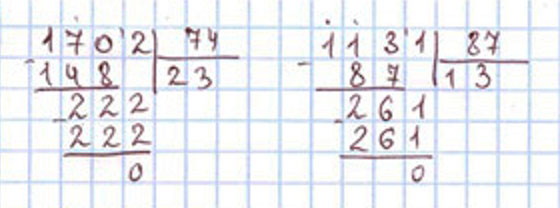 1702 74
- 148 23
- 222
222
0
1131 87
- 87 13
- 261
261
0